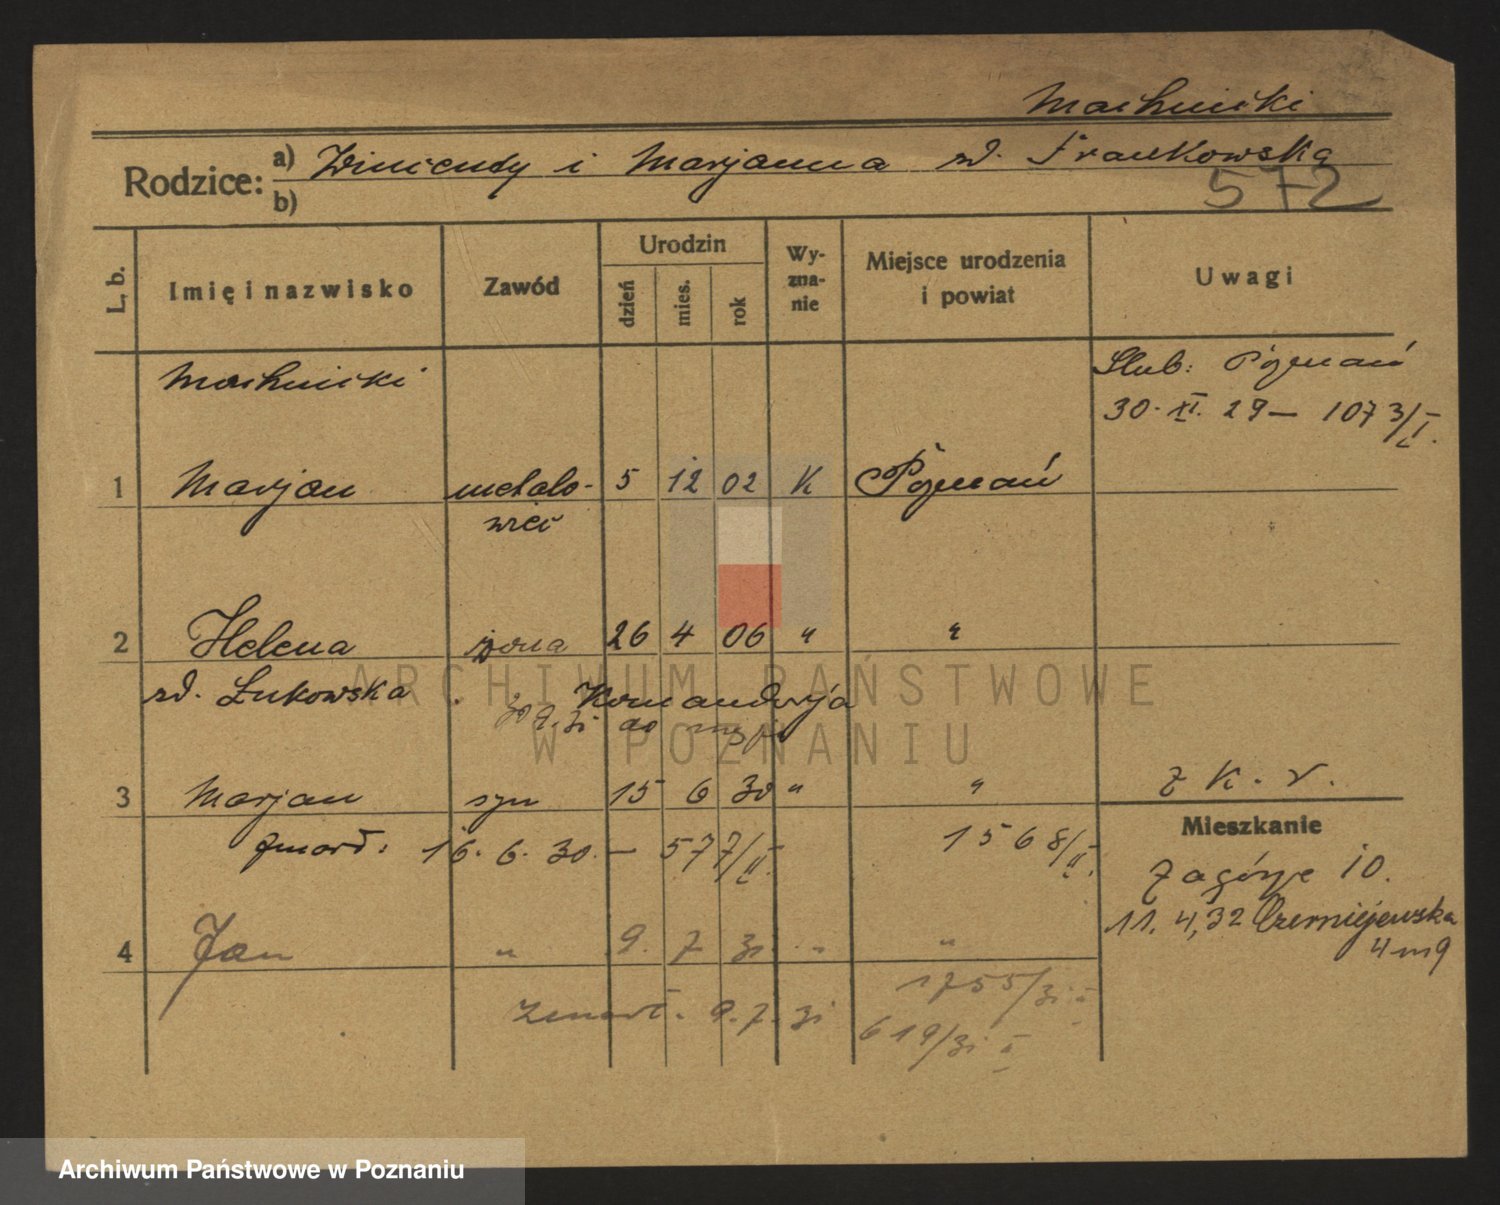 Machnicki
Rodzice: a) Wincenty i Marjanna zd. Frankowska
b)
572
L. b. Imię i nazwisko Zawód Urodzin dzień mies. rok Wyznanie Miejsce urodzenia i powiat Uwagi
Machnicki Ślub: Poznań
30. XI. 29 — 1073/I.
1 Marjan metalo- 5 12 02 K Poznań
wiec
2 Helena żona 26 4 06 " "
zd. Łukowska Komandorja
30.9.31 do
3 Marjan syn 15 6 30 " " z K. V.
Mieszkanie
zmarł: 16. 6. 30. — 577/II. 1568/II.
Zagórze 10.
11. 4, 32 Czerniejewska
4 m 9
4 Jan " 9. 7 31. " "
1755/31 II
zmarł. 9. 7. 31 619/31 II
ARCHIWUM PAŃSTWOWE
W POZNANIU
Archiwum Państwowe w Poznaniu